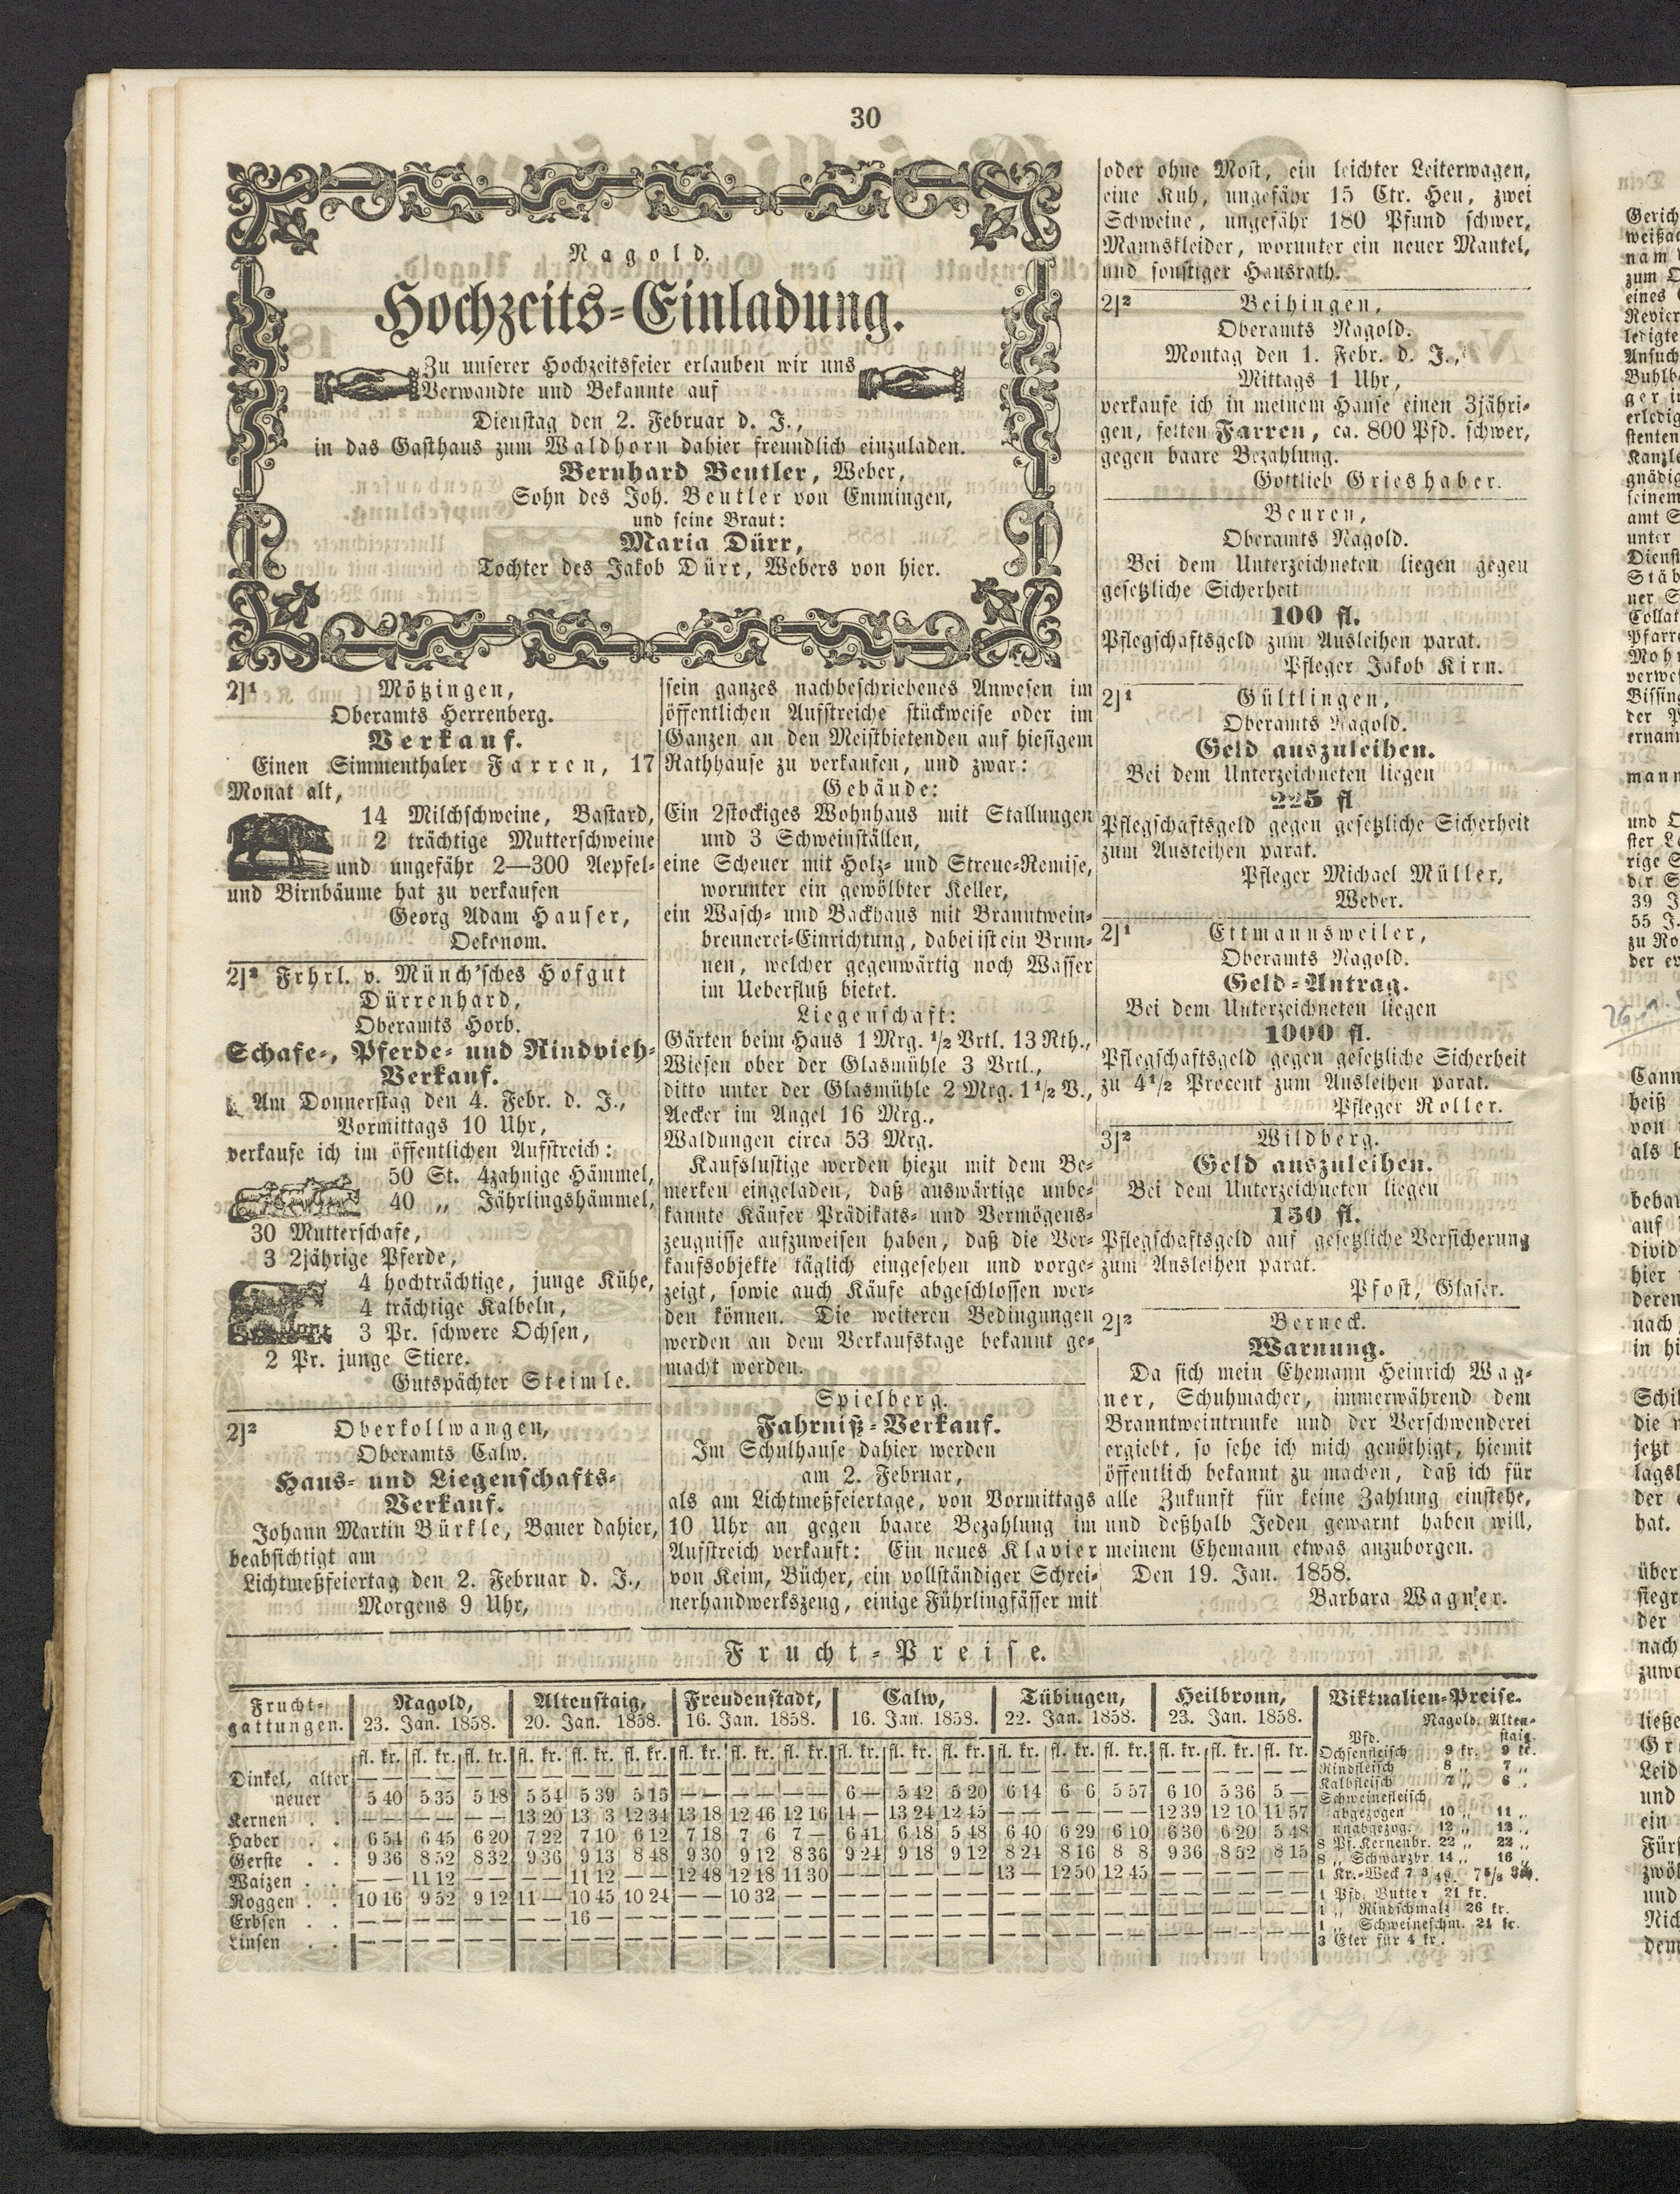 30
Nagold.
Hochzeits-Einladung.
Zu unserer Hochzeitsfeier erlauben wir uns
Verwandte und Bekannte auf
Dienstag den 2. Februar d. J.,
in das Gasthaus zum Waldhorn dahier freundlich einzuladen.
Bernhard Beutler, Weber,
Sohn des Joh. Beutler von Emmingen,
und seine Braut:
Maria Dürr,
Tochter des Jakob Dürr, Webers von hier.
2]1 Mötzingen,
Oberamts Herrenberg.
Verkauf.
Einen Simmenthaler Farren, 17
Monat alt,
14 Milchschweine, Bastard,
2 trächtige Mutterschweine
und ungefähr 2—300 Aepfel-
und Birnbäume hat zu verkaufen
Georg Adam Hauser,
Oekonom.
2]2 Frhrl. v. Münch'sches Hofgut
Dürrenhard,
Oberamts Horb.
Schafe-, Pferde- und Rindvieh-
Verkauf.
Am Donnerstag den 4. Febr. d. J.,
Vormittags 10 Uhr,
verkaufe ich im öffentlichen Aufstreich:
50 St. 4zahnige Hämmel,
40 „ Jährlingshämmel,
30 Mutterschafe,
3 2jährige Pferde,
4 hochträchtige, junge Kühe,
4 trächtige Kalbeln,
3 Pr. schwere Ochsen,
2 Pr. junge Stiere.
Gutspächter Steimle.
2]2 Oberkollwangen,
Oberamts Calw.
Haus- und Liegenschafts-
Verkauf.
Johann Martin Bürkle, Bauer dahier,
beabsichtigt am
Lichtmeßfeiertag den 2. Februar d. J.,
Morgens 9 Uhr,
sein ganzes nachbeschriebenes Anwesen im
öffentlichen Aufstreiche stückweise oder im
Ganzen an den Meistbietenden auf hiesigem
Rathhause zu verkaufen, und zwar:
Gebäude:
Ein 2stockiges Wohnhaus mit Stallungen
und 3 Schweinställen,
eine Scheuer mit Holz- und Streue-Remise,
worunter ein gewölbter Keller,
ein Wasch- und Backhaus mit Branntwein-
brennerei-Einrichtung, dabei ist ein Brun-
nen, welcher gegenwärtig noch Wasser
im Ueberfluß bietet.
Liegenschaft:
Gärten beim Haus 1 Mrg. 1/2 Vrtl. 13 Rth.,
Wiesen ober der Glasmühle 3 Vrtl.,
ditto unter der Glasmühle 2 Mrg. 1 1/2 V.,
Aecker im Angel 16 Mrg.,
Waldungen circa 53 Mrg.
Kaufslustige werden hiezu mit dem Be-
merken eingeladen, daß auswärtige unbe-
kannte Käufer Prädikats- und Vermögens-
zeugnisse aufzuweisen haben, daß die Ver-
kaufsobjekte täglich eingesehen und vorge-
zeigt, sowie auch Käufe abgeschlossen wer-
den können. Die weiteren Bedingungen
werden an dem Verkaufstage bekannt ge-
macht werden.
Spielberg.
Fahrniß-Verkauf.
Im Schulhause dahier werden
am 2. Februar,
als am Lichtmeßfeiertage, von Vormittags
10 Uhr an gegen baare Bezahlung im
Aufstreich verkauft: Ein neues Klavier
von Keim, Bücher, ein vollständiger Schrei-
nerhandwerkszeug, einige Führlingfässer mit
oder ohne Most, ein leichter Leiterwagen,
eine Kuh, ungefähr 15 Ctr. Heu, zwei
Schweine, ungefähr 180 Pfund schwer,
Mannskleider, worunter ein neuer Mantel,
und sonstiger Hausrath.
2]2 Beihingen,
Oberamts Nagold.
Montag den 1. Febr. d. J.,
Mittags 1 Uhr,
verkaufe ich in meinem Hause einen 3jähri-
gen, fetten Farren, ca. 800 Pfd. schwer,
gegen baare Bezahlung.
Gottlieb Grieshaber.
Beuren,
Oberamts Nagold.
Bei dem Unterzeichneten liegen gegen
gesetzliche Sicherheit
100 fl.
Pflegschaftsgeld zum Ausleihen parat.
Pfleger Jakob Kirn.
2]1 Gültlingen,
Oberamts Nagold.
Geld auszuleihen.
Bei dem Unterzeichneten liegen
225 fl
Pflegschaftsgeld gegen gesetzliche Sicherheit
zum Ausleihen parat.
Pfleger Michael Müller,
Weber.
2]1 Ettmannsweiler,
Oberamts Nagold.
Geld-Antrag.
Bei dem Unterzeichneten liegen
1000 fl.
Pflegschaftsgeld gegen gesetzliche Sicherheit
zu 4 1/2 Procent zum Ausleihen parat.
Pfleger Roller.
3]2 Wildberg.
Geld auszuleihen.
Bei dem Unterzeichneten liegen
150 fl.
Pflegschaftsgeld auf gesetzliche Versicherung
zum Ausleihen parat.
Pfost, Glaser.
2]2 Berneck.
Warnung.
Da sich mein Ehemann Heinrich Wag-
ner, Schuhmacher, immerwährend dem
Branntweintrunke und der Verschwenderei
ergiebt, so sehe ich mich genöthigt, hiemit
öffentlich bekannt zu machen, daß ich für
alle Zukunft für keine Zahlung einstehe,
und deßhalb Jeden gewarnt haben will,
meinem Ehemann etwas anzuborgen.
Den 19. Jan. 1858.
Barbara Wagner.
Frucht-Preise.
Frucht-gattungen. Nagold, 23. Jan. 1858. Altenstaig, 20. Jan. 1858. Freudenstadt, 16. Jan. 1858. Calw, 16. Jan. 1858. Tübingen, 22. Jan. 1858. Heilbronn, 23. Jan. 1858.
fl. kr. fl. kr. fl. kr. fl. kr. fl. kr. fl. kr. fl. kr. fl. kr. fl. kr. fl. kr. fl. kr. fl. kr. fl. kr. fl. kr. fl. kr. fl. kr. fl. kr. fl. kr.
Dinkel, alter — — — — — — — — — — — — — — — — — — — — — — — — — — — — — — — — — — — —
neuer 5 40 5 35 5 18 5 54 5 39 5 15 — — — — — — 6 — 5 42 5 20 6 14 6 6 5 57 6 10 5 36 5 —
Kernen . . — — — — — — 13 20 13 3 12 34 13 18 12 46 12 16 14 — 13 24 12 45 — — — — — — 12 39 12 10 11 57
Haber . . 6 54 6 45 6 20 7 22 7 10 6 12 7 18 7 6 7 — 6 41 6 18 5 48 6 40 6 29 6 10 6 30 6 20 5 48
Gerste . . 9 36 8 52 8 32 9 36 9 13 8 48 9 30 9 12 8 36 9 24 9 18 9 12 8 24 8 16 8 8 9 36 8 52 8 15
Waizen . . — — 11 12 — — — — 11 12 — — 12 48 12 18 11 30 — — — — — — 13 — 12 50 12 45 — — — — — —
Roggen . . 10 16 9 52 9 12 11 — 10 45 10 24 — — 10 32 — — — — — — — — — — — — — — — — — — — —
Erbsen . . — — — — — — — — 16 — — — — — — — — — — — — — — — — — — — — — — — — — — —
Linsen . . — — — — — — — — — — — — — — — — — — — — — — — — — — — — — — — — — — — —
Viktualien-Preise.
Nagold. Alten-
Pfd. staig.
Ochsenfleisch 9 kr. 9 kr.
Rindfleisch 8 „ 7 „
Kalbfleisch 7 „ 6 „
Schweinefleisch
abgezogen 10 „ 11 „
unabgezog. 12 „ 12 „
8 Pf. Kernenbr. 22 „ 22 „
8 „ Schwarzbr. 14 „ 16 „
1 Kr.-Weck 7 3/4
1 Pfd. Butter 21 kr.
1 „ Rindschmalz 26 kr.
1 „ Schweineschm. 24 kr.
3 Eier für 4 kr.